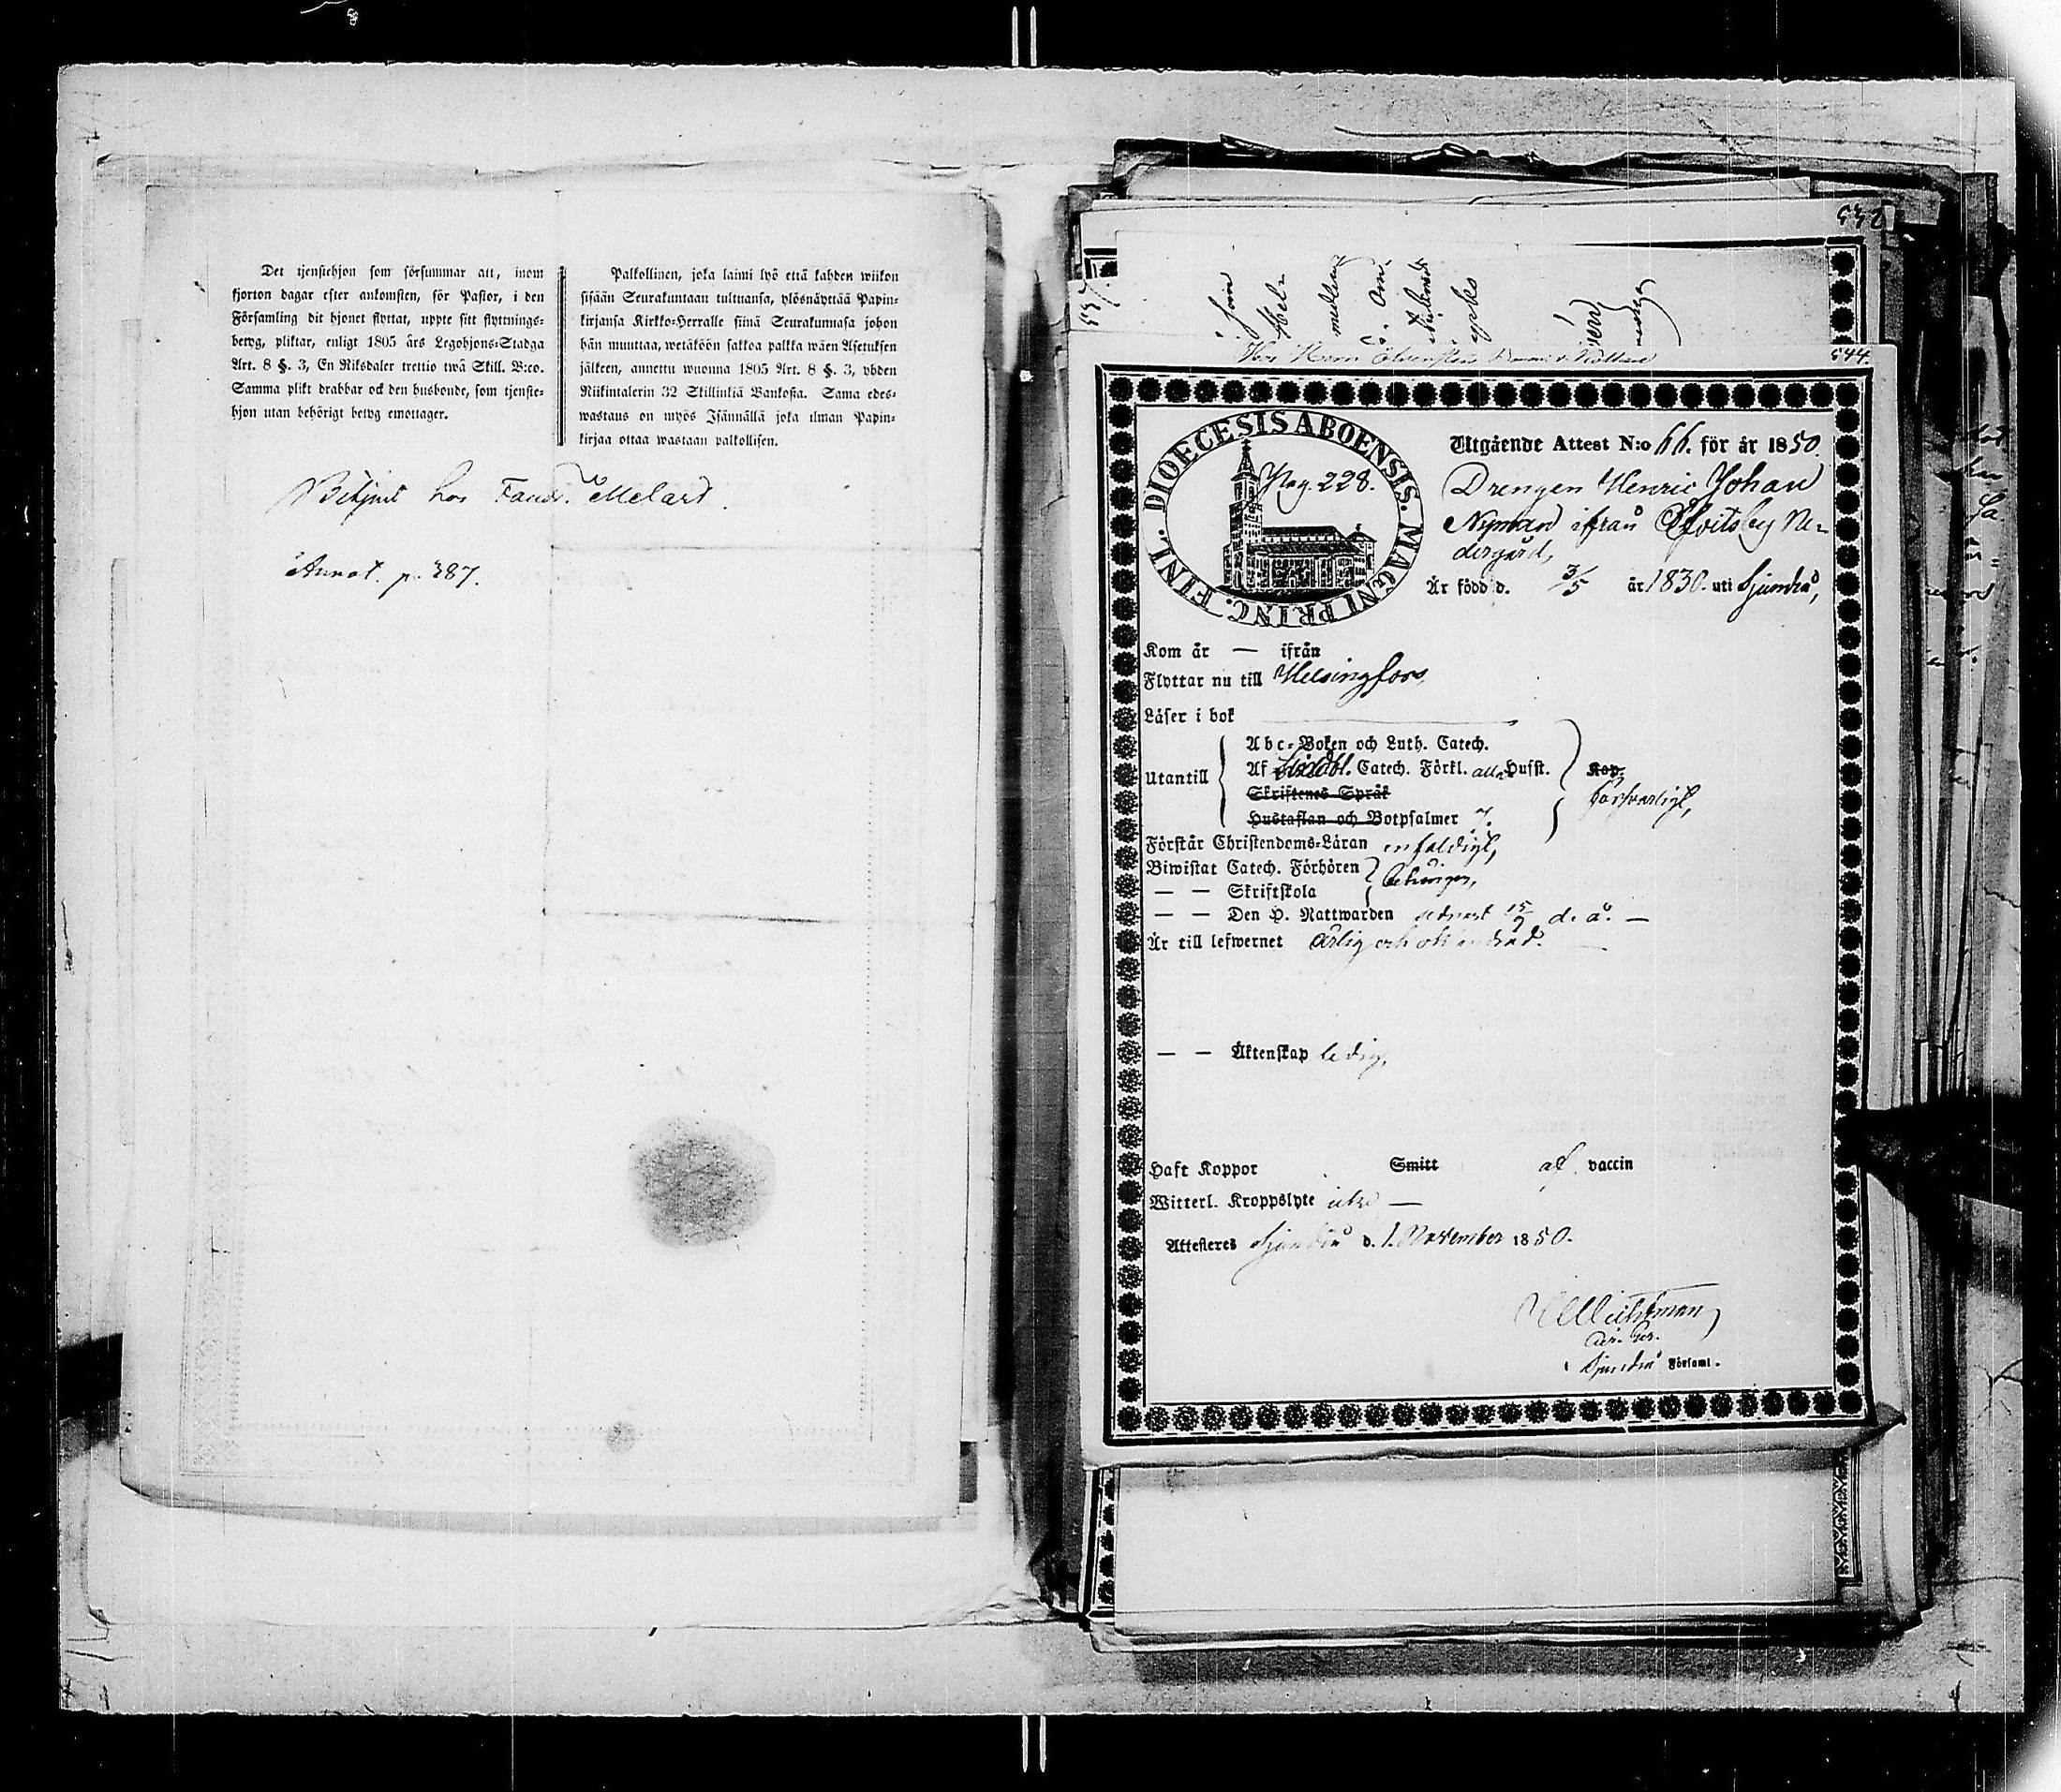 Det tjenstehjon som försummar att, inom
fjorton dagar efter ankomsten, för Pastor, i den
Församling dit hjonet flyttat, uppte sitt flyttnings-
betyg, pliktar, enligt 1805 års Legohjons-Stadga
Art. 8 §. 3, En Riksdaler trettio twå Skill. B:co.
Samma plikt drabbar ock den husbonde, som tjenste-
hjon utan behörigt betyg emottager.
Palkollinen, joka laimi lyö että kahden wiikon
sisään Seurakuntaan tultuansa, ylösnäyttää Papin-
kirjansa Kirkko-Herralle siinä Seurakunnasa johon
hän muuttaa, wetäköön sakkoa palkka wäen Asetuksen
jälkeen, annettu wuonna 1805 Art. 8 §. 3, yhden
Riikintalerin 32 Skillinkiä Bankosa. Sama edes-
wastaus on myös Isännällä joka ilman Papin-
kirjaa ottaa wastaan palkollisen.
Betjent hos Melart.
Annot. p. 387.
538
537.
544.
DIOECESIS ABOENSIS. MAGNI PRINC. FINL.
Pag. 228.
Utgående Attest N:o 66. för år 1850.
Drengen Henric Johan
Nyman ifrån Ne-
dergård,
Är född d. 3/5 år 1830. uti Sjundeå,
Kom år — ifrån
Flyttar nu till Helsingfors,
Läser i bok
Abc-Boken och Luth. Catech.
Utantill Af Lindbl. Catech. Förkl. alla Husst. Kap.
Skriftenes Språk försvarligt,
Hustaflan och Botpsalmer 7.
Förstår Christendoms-Läran enfaldigt,
Biwistat Catech. Förhören
— — Skriftskola behörigen,
— — Den H. Nattwarden sednast 15/9 d. å. —
Är till lefwernet ärlig och oklandrad.
— — Äktenskap ledig,
Haft Koppor Smitt af vaccin
Witterl. Kroppslyte icke —
Attesteras Sjundeå d. 1. November 1850.
Sjundeå Församl.